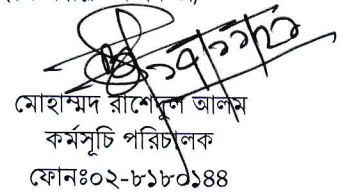 ১৭/১১/২১
মোহাম্মদ রাশেদুল আলম
কর্মসূচি পরিচালক
ফোনঃ০২-৮১৮০১৪৪